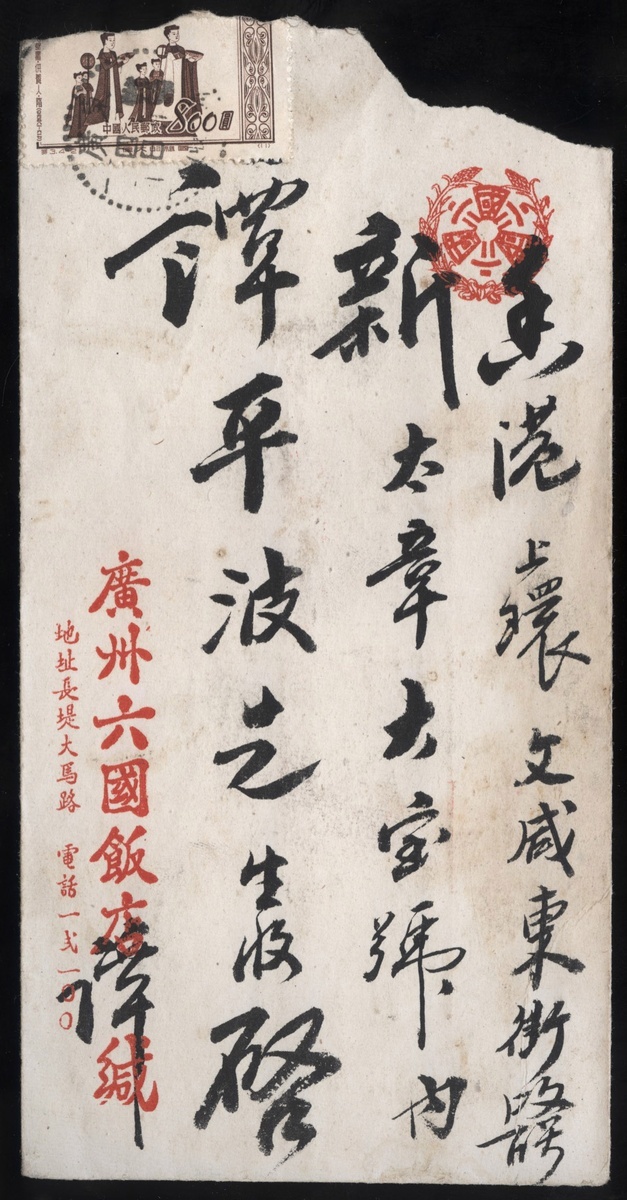 香港上環文咸東街
新太章大寶號內
譚平波先生收啓
廣州六國飯店 譚 緘
地址長堤大馬路 電話一弍一〇〇
中國人民郵政 800圓